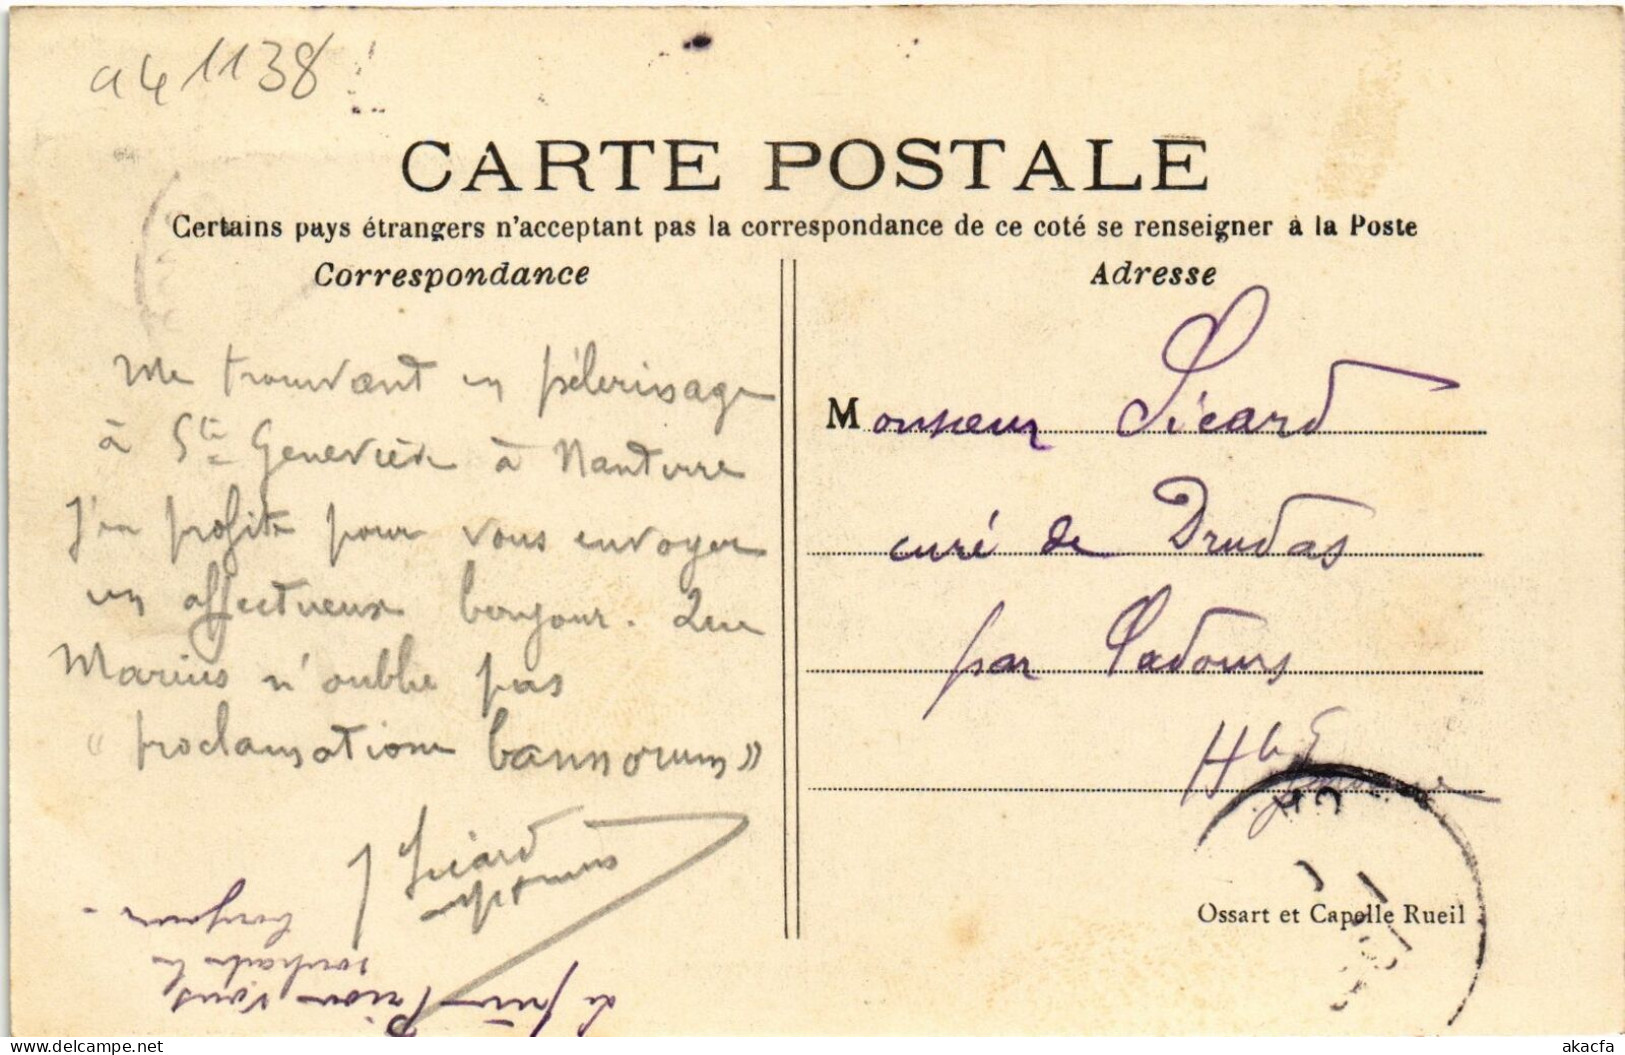 a41138
CARTE POSTALE
Certains pays étrangers n'acceptant pas la correspondance de ce coté se renseigner à la Poste
Correspondance
Me trouvant en pélerinage
à Ste Geneviève à Nanterre
J'en profite pour vous envoyer
un affectueux bonjour. Que
Marius n'oublie pas
"proclamatione bannorum"
J Sicard
le frère Prion vous
souhaite le
bonjour -
Adresse
Monsieur Sicard
curé de Drudas
par Cadours
Hte
Ossart et Capelle Rueil
delcampe.net
akacfa